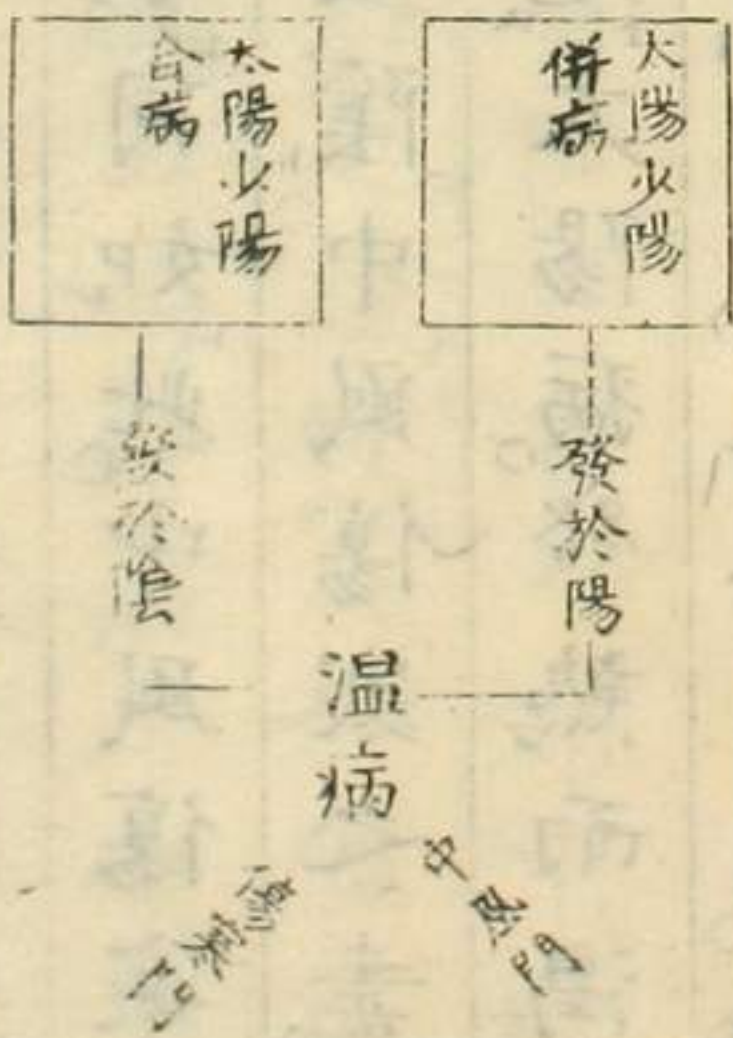 太陽少陽
併病
太陽少陽
合病
發於陽
發於陰
温病
中風門
傷寒門